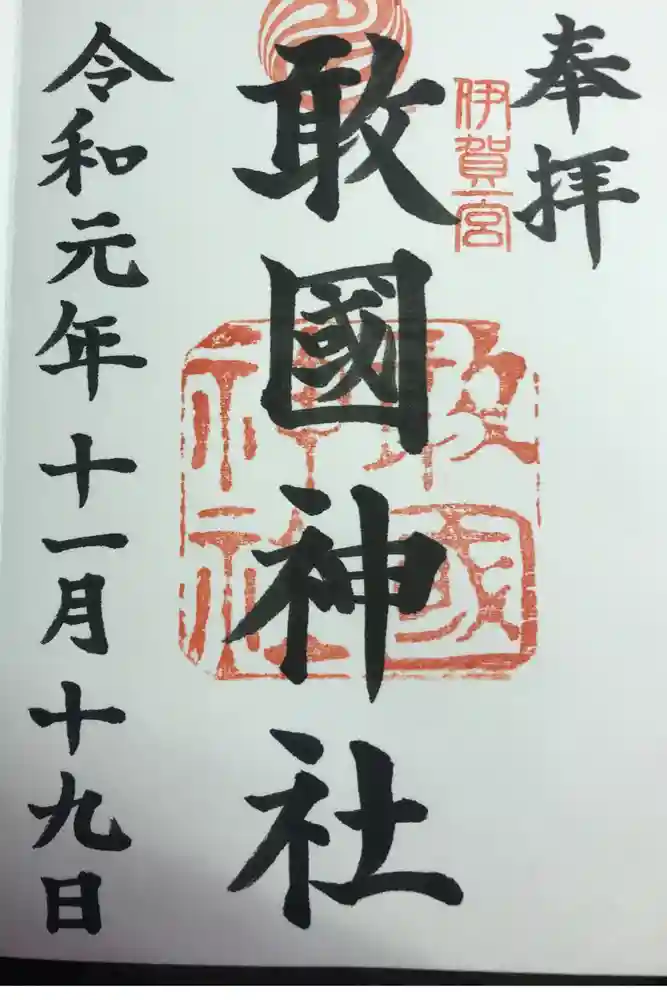 奉拝
伊賀一宮
敢國神社
敢國神社
令和元年十一月十九日